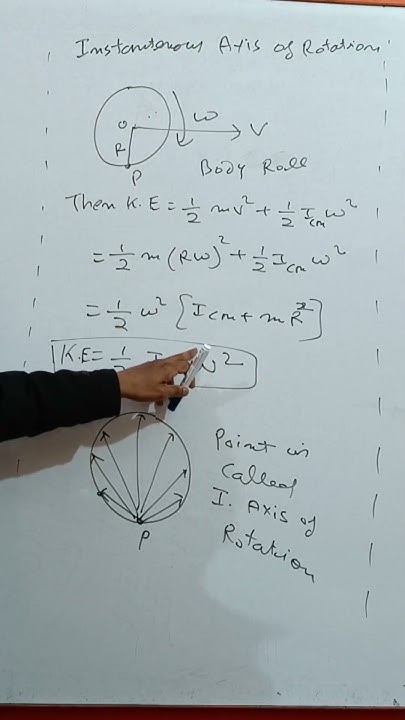 Instantenous Axis of Rotation
ω
O
V
R
P
Body Roll
Then K.E = 1/2 mv² + 1/2 Icm ω²
= 1/2 m (Rω)² + 1/2 Icm ω²
= 1/2 ω² [Icm + mR²]
K.E = 1/2 I ω²
Point is
Called
I. Axis of
Rotation
P